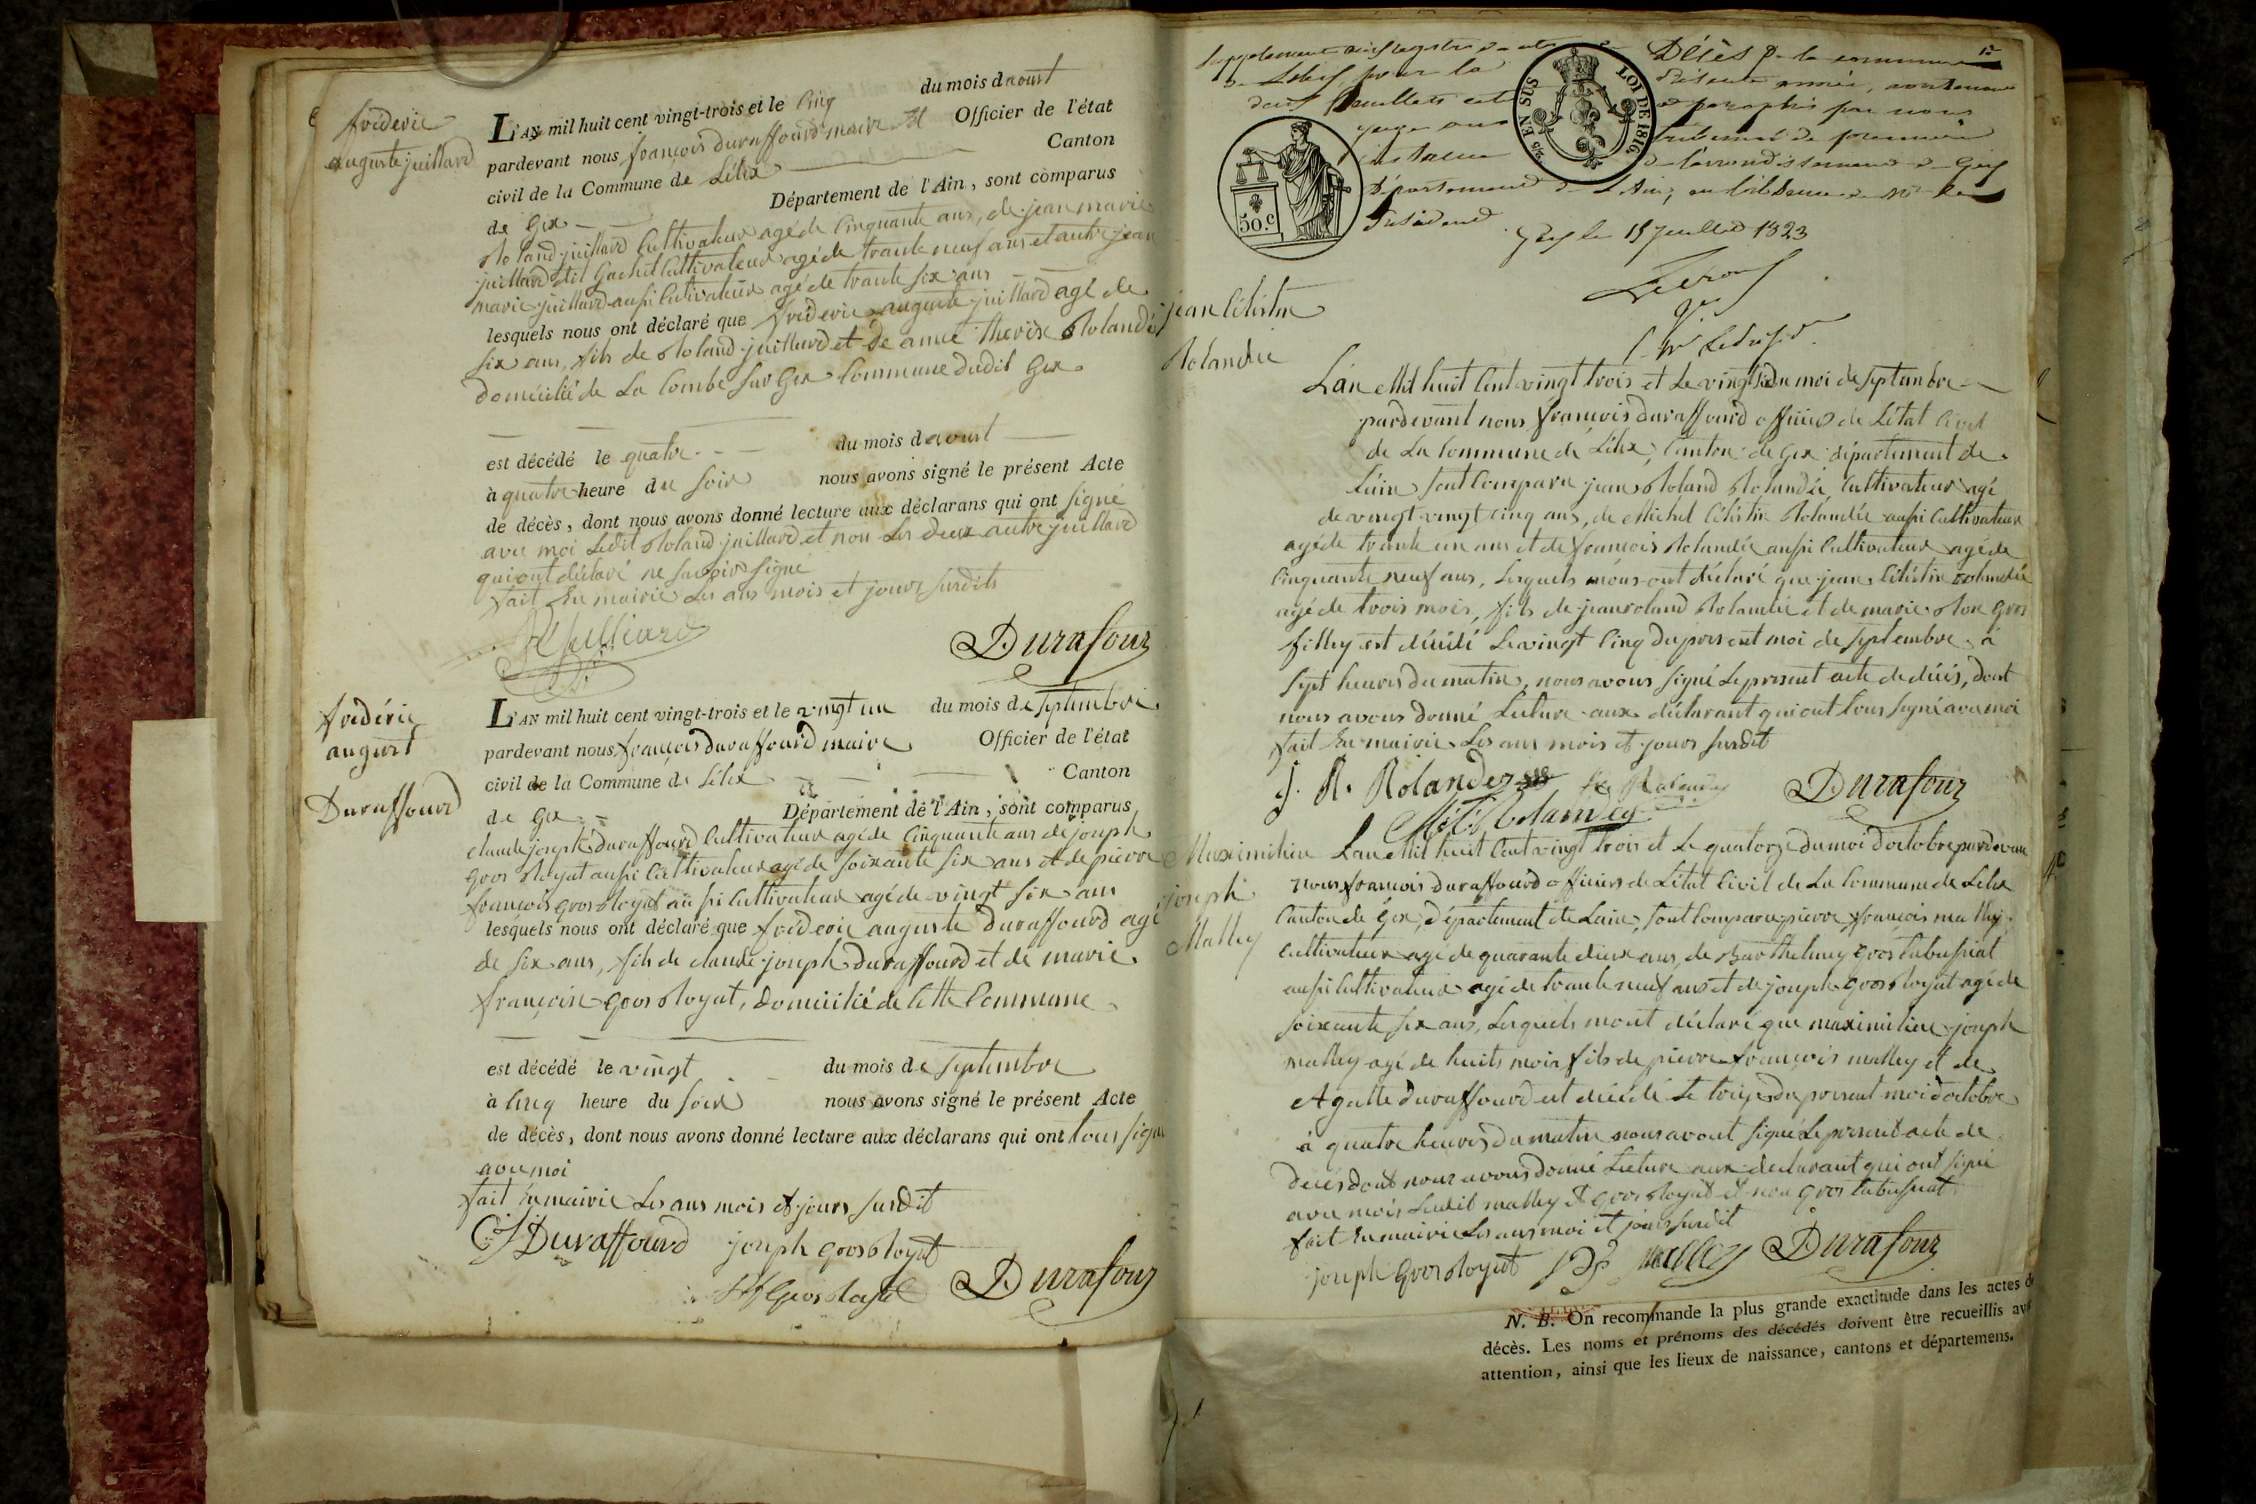 frederic
auguste juillard
L'AN mil huit cent vingt-trois et le cinq du mois daoust
pardevant nous françois duraffourd maire et Officier de l'état
civil de la Commune de Lélex Canton
de Gex Département de l'Ain, sont comparus
Roland juillard Cultivateur agé de Cinquante ans, de jean marie
juillard dit Gachet Cultivateur agé de trante neuf ans et autre jean
marie juillard aussi Cultivateur agé de trante six ans
lesquels nous ont déclaré que frederic auguste juillard agé de
six ans, fils de Roland juillard et de anne therèse Rolandé
domicilié de La Combe sur Gex Commune dudit Gex.
est décédé le quatre du mois daoust
à quatre heure du soir nous avons signé le présent Acte
de décès, dont nous avons donné lecture aux déclarans qui ont signé
avec moi Ledit Roland juillard et non Les deux autre juillard
qui ont déclaré ne savoir signe
fait En mairie Les ans mois et jours susdits
Durafour
frédéric
august
Duraffourd
L'AN mil huit cent vingt-trois et le vingt un du mois de septembre
pardevant nous françois duraffourd maire Officier de l'état
civil de la Commune de Lélex Canton
de Gex Département de l'Ain, sont comparus
claude joseph duraffourd Cultivateur agé de Cinquante ans de joseph
gros Royat aussi Cultivateur agé de soixante six ans et de pierre
françois gros Royat aussi Cultivateur agé de vingt six ans
lesquels nous ont déclaré que frederic auguste duraffourd agé
de six ans, fils de claude joseph duraffourd et de marie
françoise gros Royat, domicilié de Cette Commune
est décédé le vingt du mois de septembre
à cinq heure du soir nous avons signé le présent Acte
de décès, dont nous avons donné lecture aux déclarans qui ont tous signé
avec moi
fait En mairie Les ans mois et jours susdit
C J Duraffourd joseph gros Royat
Durafour
Supplément au registre de Décès de la commune
de Lélex pour la présente année, contenant
deux feuillets coté et paraphés par nous
juge au tribunal de première
instance de l'arrondissement de Gex
Département de l'Ain, en l'absence de Mr le
Président
Gex le 15 juillet 1823
EN SUS
LOI DE 1816
50.c
jean Céléstin
Rolandée
L'an Mil huit Cent vingt trois et Le vingt six du moi de septembre
pardevant nous françois duraffourd officier de L'état Civil
de La Commune de Lélex, Canton de Gex département de
L'ain sont Comparu jean Roland Rolandée, Cultivateur agé
de vingt vingt cinq ans, de Michel Céléstin Rolandée aussi Cultivateur
agé de trante un ans et de françois Rolandée aussi Cultivateur agé de
Cinquante neuf ans, Lesquels nous ont déclaré que jean Céléstin rolandée
agé de trois mois, fils de jean roland Rolandée et de marie Rose gros
filley est décédé Le vingt cinq du present moi de septembre à
sept heures du matin, nous avons signé Le present acte de décés, dont
nous avons donné Lecture aux déclarant qui ont tous signé avec moi
fait En mairie Les ans mois et jours susdit
J. R. Rolandez
Durafour
Maximilien
joseph
Malley
L'an Mil huit Cent vingt trois et Le quatorze du moi d'octobre pardevant
nous françois duraffourd officiers de L'état Civil de La Commune de Lelex
Canton de Gex, département de Lain, sont Comparu pierre françois malley
Cultivateur agé de quarante deux ans, de Barthelemy gros tabussiat
aussi Cultivateur agé de trante neuf ans et de joseph gros Royat agé de
soixante six ans, Lesquels m'ont déclaré que maximilien joseph
malley agé de huits mois fils de pierre françois malley et de
Agatte Duraffourd est décédé Le treize du present moi doctobre
à quatre heures du matin nous avont signé Le present acte de
décés dont nous avons donné Lecture aux declarant qui ont signé
avec mois Ledit malley et gros Royat et non gros tabussiat
fait En mairie Les ans moi et jours susdit
joseph gros Royat Durafour
N. B. On recommande la plus grande exactitude dans les actes d
décès. Les noms et prénoms des décédés doivent être recueillis av
attention, ainsi que les lieux de naissance, cantons et départemens.